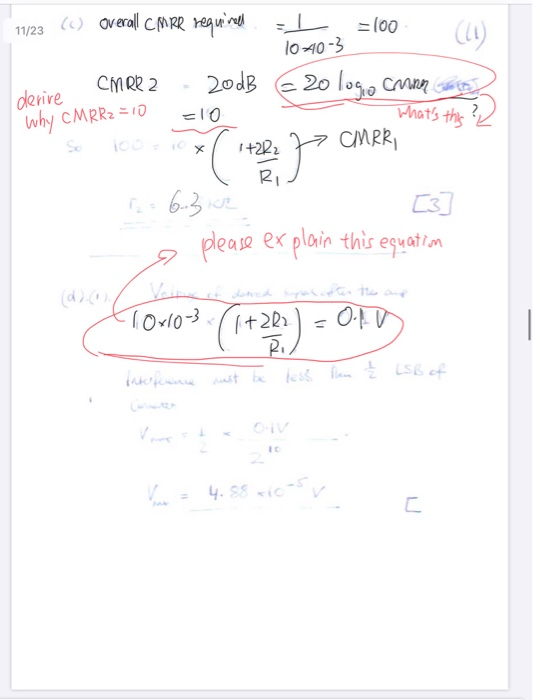 11/23 (c) overall CMRR required = 1 / 10×10-3 = 100 (11)
CMRR 2 20dB = 20 log10 CMRR
derive why CMRR2 = 10
= 10
what's this ?
So 100 = 10 × (1+2R2 / R1) → CMRR1
r2 = 6.3 kΩ [3]
please explain this equation
(d).(i). Value of desired signal after the amp
10×10-3 (1+2R2 / R1) = 0.1 V
Interference must be less than 1/2 LSB of
Converter
= 1/2 × 0.1V / 2 10
= 4.88 ×10-5 V [